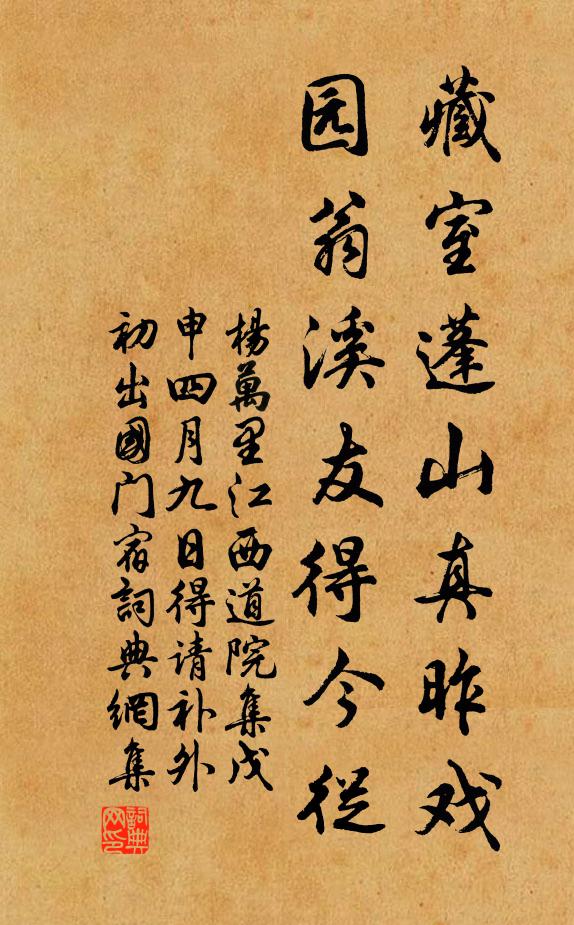 藏室蓬山真昨戏
园翁溪友得今从
楊萬里江西道院集戊
申四月九日得请补外
初出國门宿詞典網集
詞典
网印